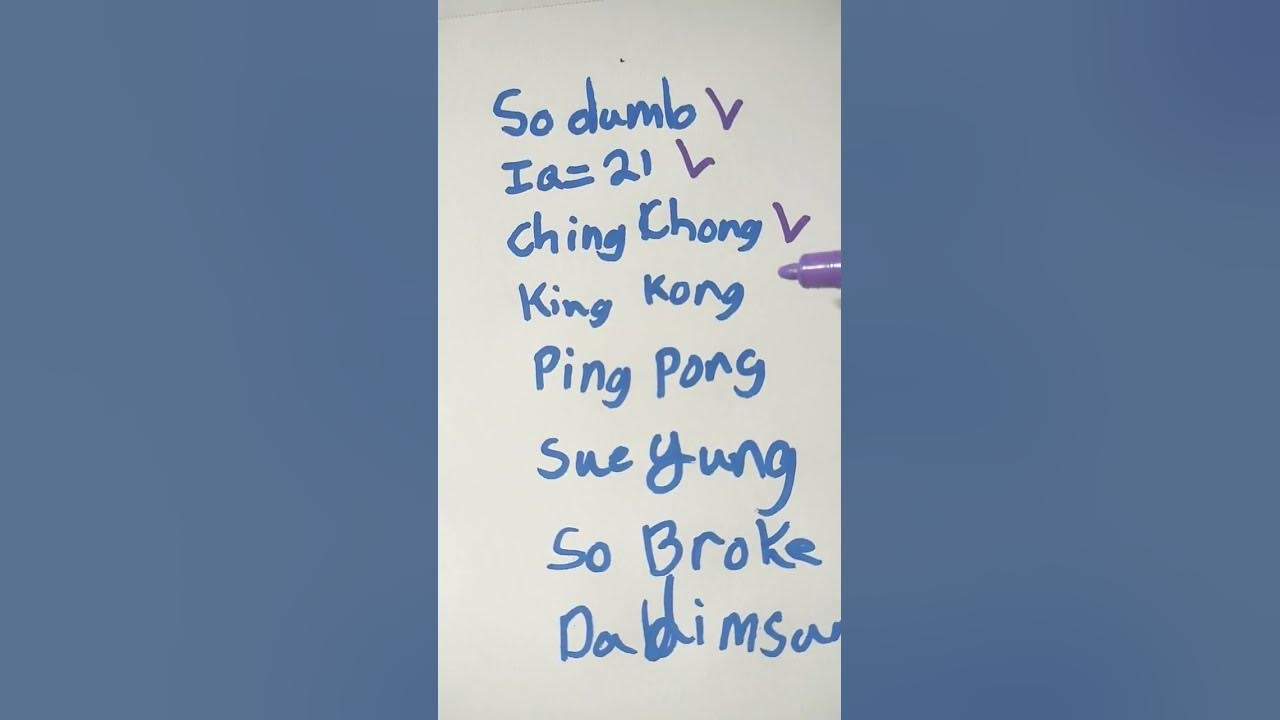 So dumb
Ia=21
Ching Chong
King Kong
Ping Pong
Sue Yung
So Broke